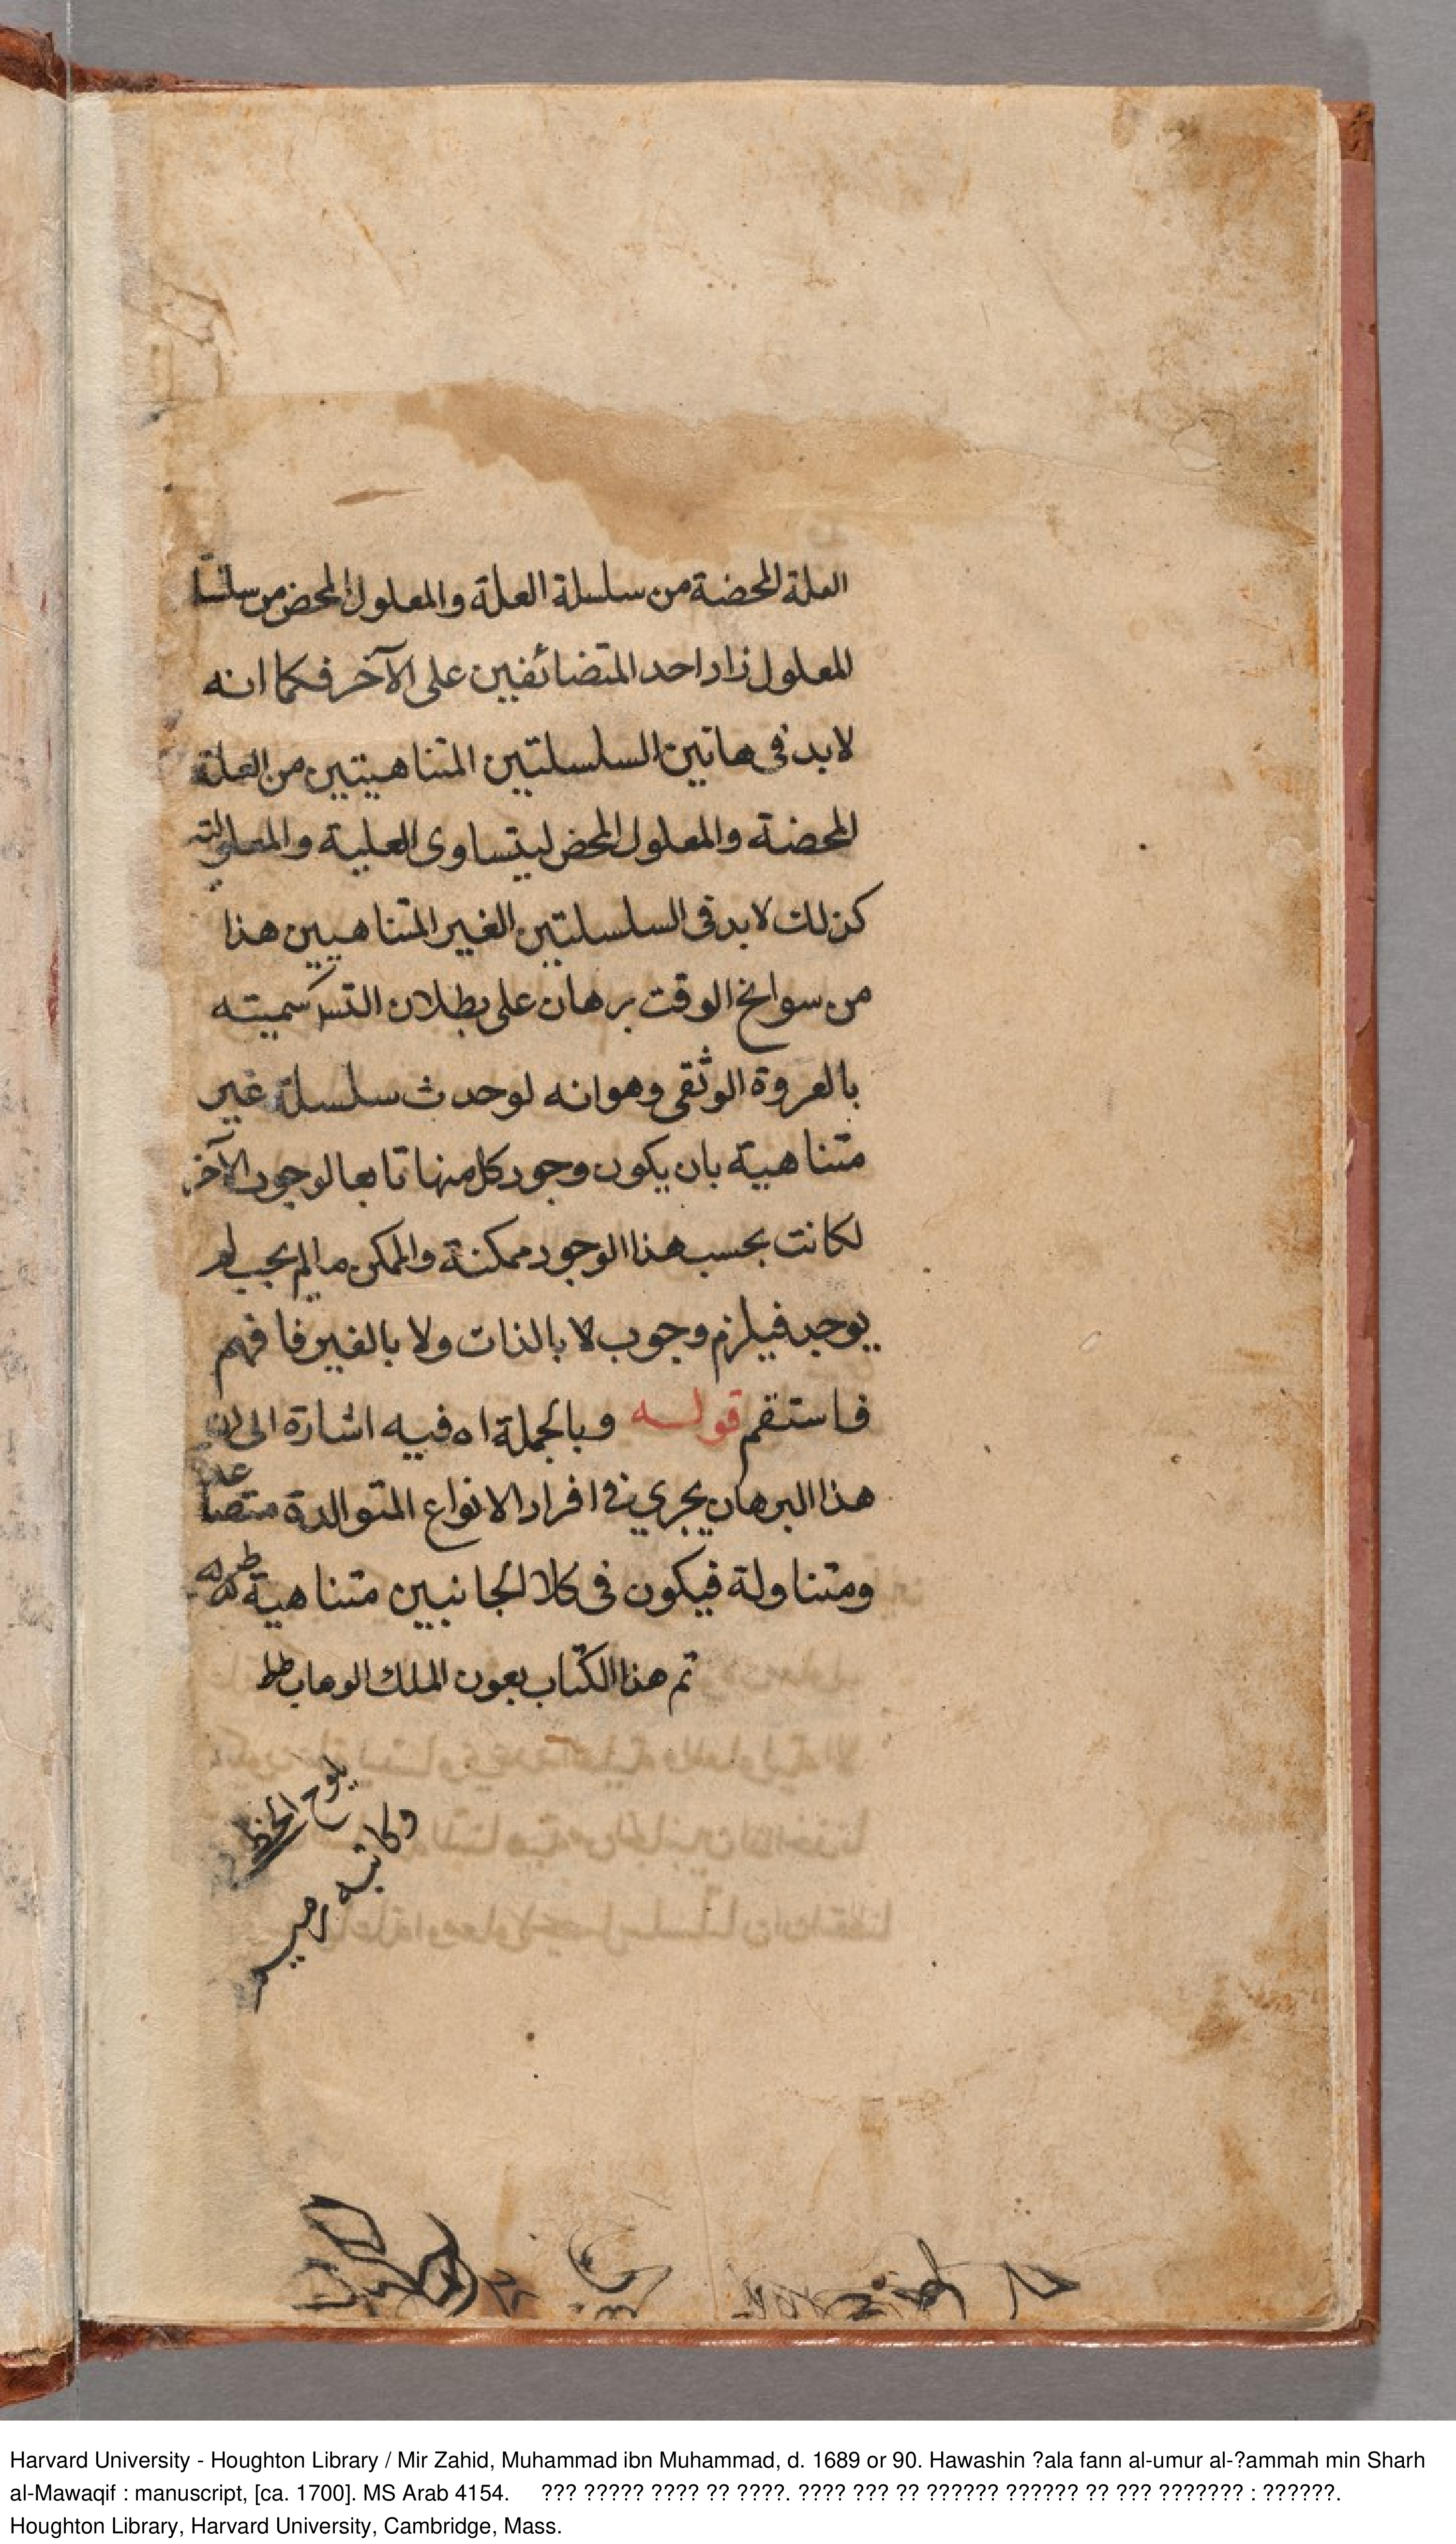 العلة المحضة من سلسلة العلة والمعلول المحض من سلسلة
المعلول زاد احد المتضائفين على الآخر فكما انه
لابد فى هاتين السلسلتين المتناهيتين من العلة
المحضة والمعلول المحض ليتساوى العلية والمعلولية
كذلك لابد فى السلسلتين الغير المتناهيين هذا
من سوانح الوقت برهان على بطلان التس سميته
بالعروة الوثقى وهو انه لو حدث سلسلة غير
متناهية بان يكون وجود كل منها تابعا لوجود الآخر
لكانت بحسب هذا الوجود ممكنة والممكن ما لم يجب لم
يوجد فيلزم وجوب لا بالذات ولا بالغير فافهم
فاستقم قوله وبالجملة اه فيه اشارة الى ان
هذا البرهان يجري فى افراد الانواع المتوالدة متصاعدة
ومتناولة فيكون فى كلا الجانبين متناهية
تم هذا الكتاب بعون الملك الوهاب
يلوح الخط
وكاتبه رميم
Harvard University - Houghton Library / Mir Zahid, Muhammad ibn Muhammad, d. 1689 or 90. Hawashin ?ala fann al-umur al-?ammah min Sharh
al-Mawaqif : manuscript, [ca. 1700]. MS Arab 4154. ??? ????? ???? ?? ????. ???? ??? ?? ?????? ?????? ?? ??? ??????? : ??????.
Houghton Library, Harvard University, Cambridge, Mass.